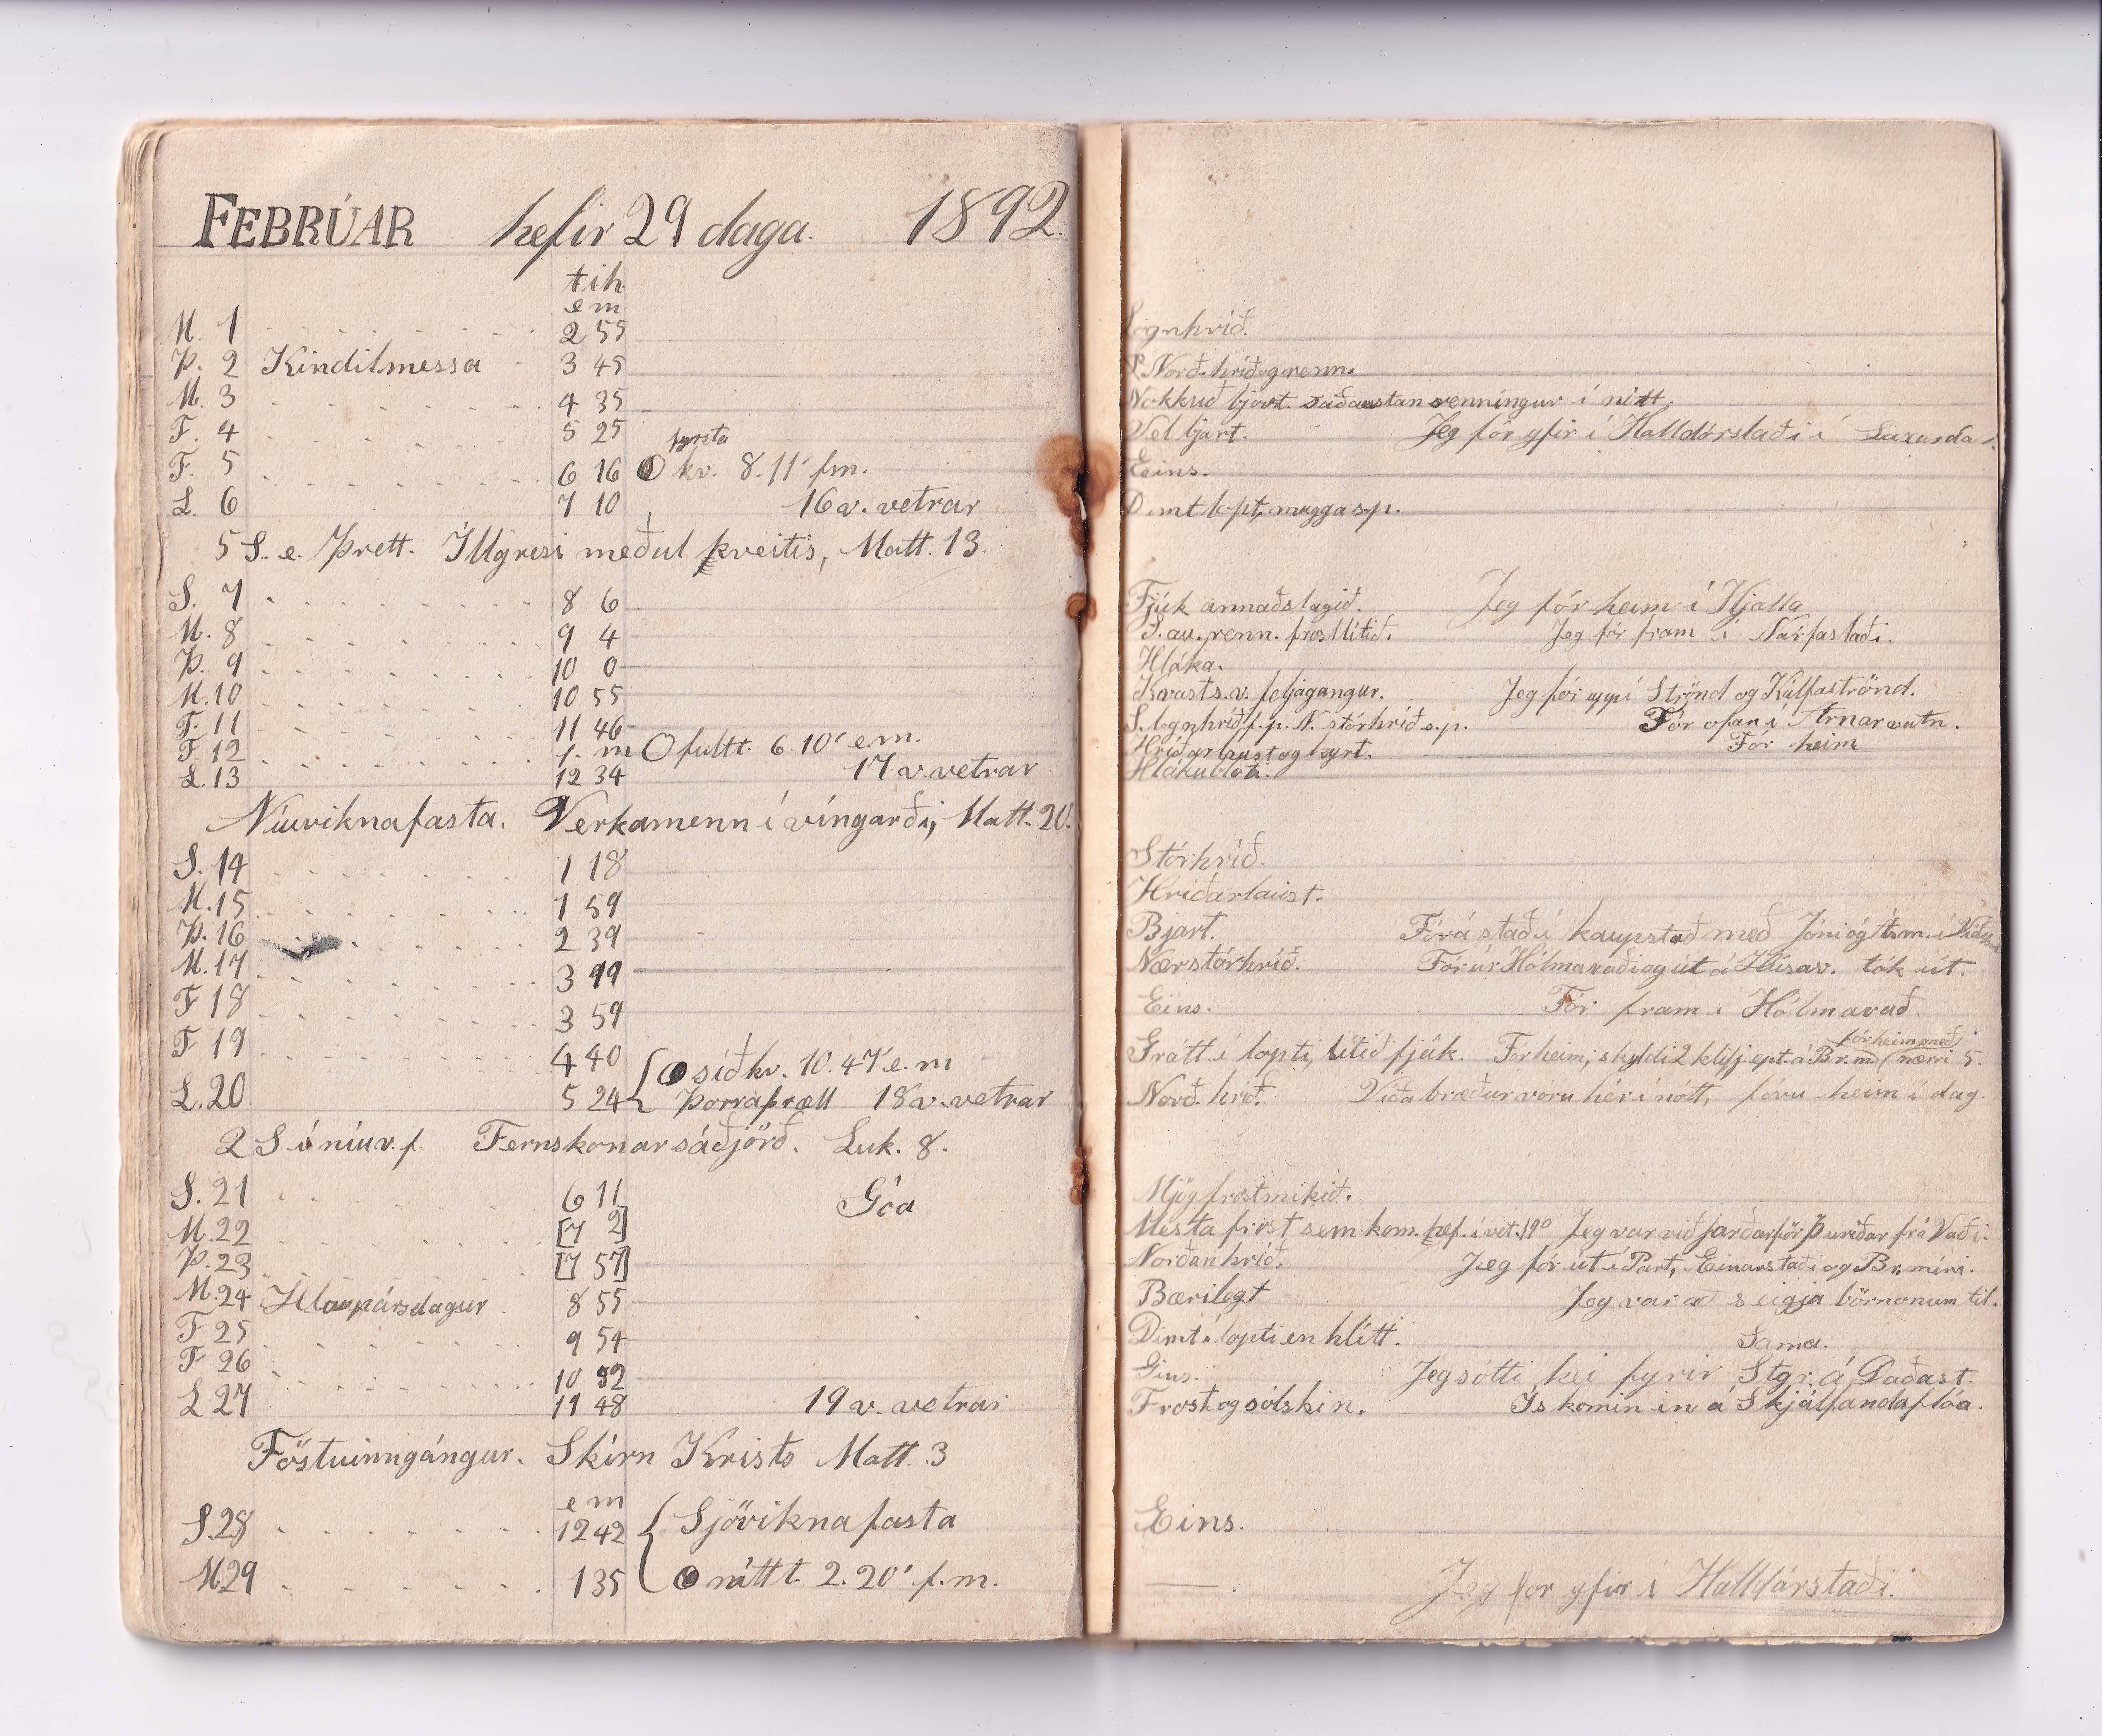 FEBRÚAR hefir 29 daga. 1892.
t í h
e m
M. 1 2 55
Þ. 2 Kindilmessa 3 45
M. 3 4 35
F. 4 5 25
fyrsta
F. 5 6 16 kv. 8.11' fm.
L. 6 7 10 16 v. vetrar
5 S. e. Þrett. Illgresi meðal hveitis, Matt. 13.
S. 7 8 6
M. 8 9 4
Þ. 9 10 0
M. 10 10 55
F. 11 11 46
F. 12 f. m fullt. 6.10' e.m.
L. 13 12 34 17 v. vetrar
Níuviknafasta. Verkamenn í víngarði, Matt. 20.
S. 14 1 18
M. 15 1 59
Þ. 16 2 39
M. 17 3 19
F 18 3 59
F 19 4 40 síð kv. 10.47' e.m
L. 20 5 24 Þorraþræll 18 v. vetrar
2 S í níuv.f. Fernskonar sáðjörð. Luk. 8.
S. 21 6 11 Góa
M. 22 [7 2]
Þ. 23 [7 57]
M. 24 Hlaupársdagur 8 55
F 25 9 54
F 26 10 52
L 27 11 48 19 v. vetrar
Föstuinngángur. Skírn Krists Matt. 3
e m
S. 28 12 42 Sjöviknafasta
M 29 1 35 nítt t. 2.20' f.m.
Lognhríð.
Norð. hríð og renn.
Nokkuð bjart. suðaustan renningur í nótt.
Vel bjart. Jeg fór yfir í Halldórstaði í Laxárda
Eins.
Dimt lopt, mugga s.p.
Fjúk annaðslagið. Jeg fór heim í Hjalla
S. au. renn. frostlítið. Jeg fór fram í Narfastaði.
Hláka.
Kvast s.v. jeljagangur. Jeg fór uppí Strönd og Kálfaströnd.
S. lognhríð f.p. N. stórhríð s.p. Fór ofan í Arnarvatn.
Hríðarlaust og kyrt. Fór heim
Hlákublota.
Stórhríð.
Hríðarlaust.
Bjart. Fór á stað í kaupstað með Jóni og
Nærstórhríð. Fór úr Hólmavaði og út á Húsav. tók út.
Eins. Fór fram í Hólmavað.
fór heim með
Grátt í lopti, lítið fjúk. Fór heim; skyldi 2 klifj. ept. á Br.m (nærri 5.
Norð. hríð. Víðabræður voru hér í nótt, fóru heim í dag.
Mjög frostmikið.
Mesta frost sem kom. hef. í vet. 19° Jeg var við jarðarför Þuríðar frá Vaði.
Norðanhríð. Jeg fór út í Part, Einarstaði og Br.míri.
Bærilegt Jeg var að seigja börnonum til.
Dimt í lopti en hlítt. Sama.
Eins. Jeg sótti hei fyrir Stgr. á Daðast.
Frost og sólskin. Ís komin in á Skjálfandaflóa.
Eins.
— . Jeg for yfir í Halldórstaði.